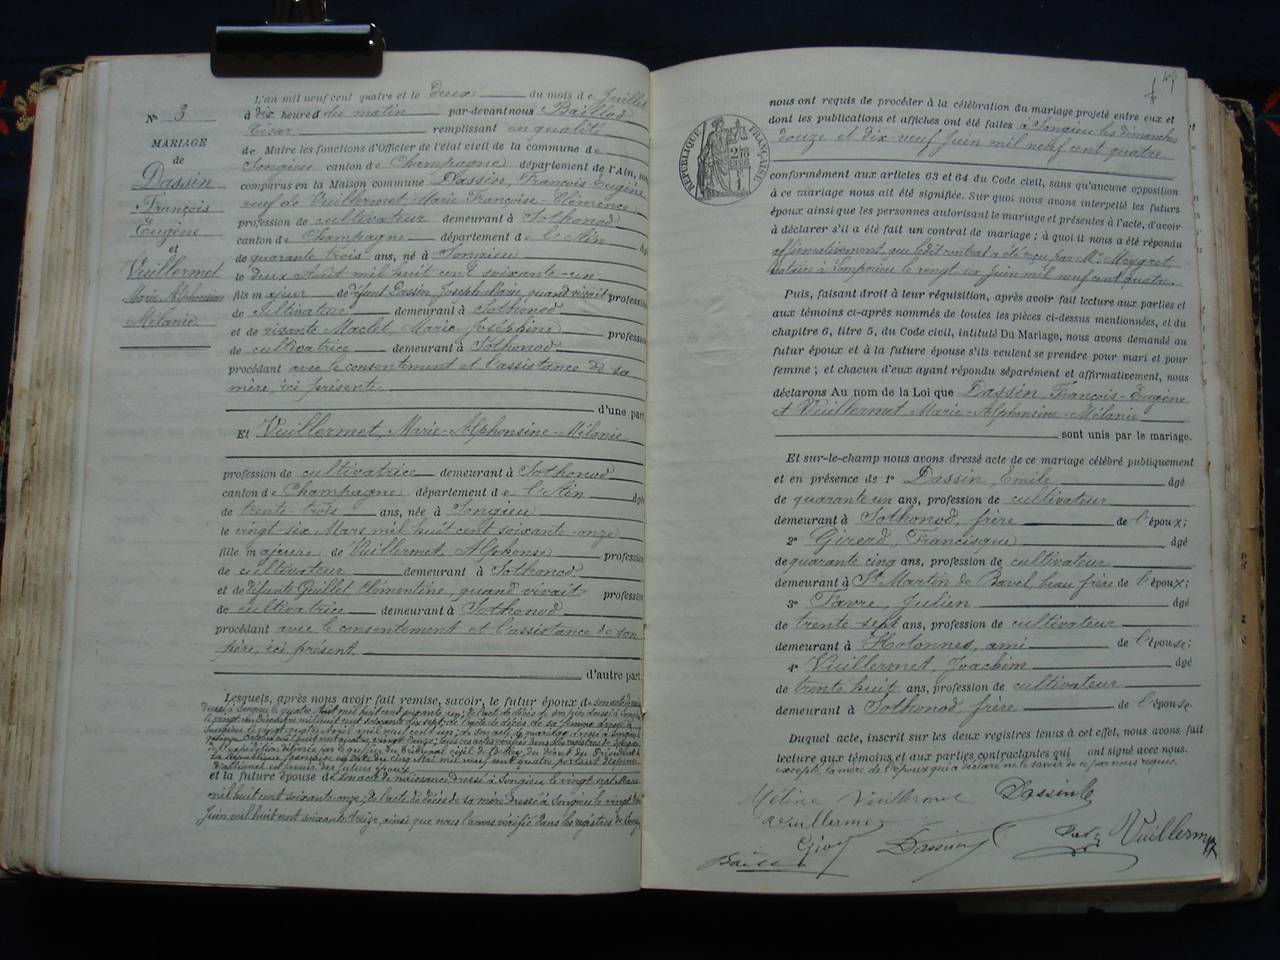 N° 3
MARIAGE
de
Dassin
François
Eugène
et
Vuillermet
Marie Alphonsine
Mélanie
L'an mil neuf cent quatre et le deux du mois de Juillet
à dix heures du matin par-devant nous Baillod
César remplissant en qualité
de Maire les fonctions d'Officier de l'état civil de la commune de
Songieu canton de Champagne département de l'Ain, sont
comparus en la Maison commune Dassin, François-Eugène
veuf de Vuillermet Marie-Françoise-Clémence
profession de cultivateur demeurant à Sothonod
canton de Champagne département de l'Ain âgé
de quarante trois ans, né à Songieu
le deux Août mil huit cent soixante-un
fils majeur de défunt Dassin Joseph Marie, quand vivait profession
de cultivateur demeurant à Sothonod
et de vivante Maclet Marie-Joséphine profession
de cultivatrice demeurant à Sothonod
procédant avec le consentement et l'assistance de sa
mère, ici présente
d'une part
Et Vuillermet, Marie-Alphonsine-Mélanie
profession de cultivatrice demeurant à Sothonod
canton de Champagne département de l'Ain âgée
de trente-trois ans, née à Songieu
le vingt-six Mars mil huit cent soixante-onze
fille majeure de Vuillermet Alphonse profession
de cultivateur demeurant à Sothonod
et de défunte Quillet Clémentine, quand vivait profession
de cultivatrice demeurant à Sothonod
procédant avec le consentement et l'assistance de son
père, ici présent
d'autre part
Lesquels, après nous avoir fait remise, savoir, le futur époux de son acte de
dressé à Songieu le quatre Août mil huit cent soixante-un; de l'acte de décès de son père dressé à Songieu
le vingt-un Décembre mil huit cent soixante dix sept; de l'acte de décès de sa femme dressé à
Songieu le vingt quatre Avril mil neuf cent un; de son acte de mariage dressé à Songieu
mil huit cent quatre vingt douze; tous ces actes vérifiés dans les registres de Songieu
expédition délivrée par le greffier du tribunal civil de Belley, du décret du Président de
la République française en date du cinq Mai mil neuf cent quatre portant dispense
en faveur des futurs époux
et la future épouse de son acte de naissance dressé à Songieu le vingt sept Mars
mil huit cent soixante-onze; de l'acte de décès de sa mère dressé à Songieu le vingt
Juin mil huit cent soixante treize, ainsi que nous l'avons vérifié dans les registres de Songieu
RÉPUBLIQUE FRANÇAISE
nous ont requis de procéder à la célébration du mariage projeté entre eux et
dont les publications et affiches ont été faites à Songieu les dimanches
douze et dix-neuf Juin mil neuf cent quatre
conformément aux articles 63 et 64 du Code civil, sans qu'aucune opposition
à ce mariage nous ait été signifiée. Sur quoi nous avons interpellé les futurs
époux ainsi que les personnes autorisant le mariage et présentes à l'acte, d'avoir
à déclarer s'il a été fait un contrat de mariage; à quoi il nous a été répondu
affirmativement que ledit contrat a été reçu par Me Meygret
notaire à Lompnieu le vingt six Juin mil neuf cent quatre.
Puis, faisant droit à leur réquisition, après avoir fait lecture aux parties et
aux témoins ci-après nommés de toutes les pièces ci-dessus mentionnées, et du
chapitre 6, titre 5, du Code civil, intitulé Du Mariage, nous avons demandé au
futur époux et à la future épouse s'ils veulent se prendre pour mari et pour
femme; et chacun d'eux ayant répondu séparément et affirmativement, nous
déclarons Au nom de la Loi que Dassin, François-Eugène
et Vuillermet Marie-Alphonsine-Mélanie
sont unis par le mariage.
Et sur-le-champ nous avons dressé acte de ce mariage célébré publiquement
et en présence de 1° Dassin, Emile âgé
de quarante un ans, profession de cultivateur
demeurant à Sothonod, frère de l'époux;
2° Girerd, Francisque âgé
de quarante cinq ans, profession de cultivateur
demeurant à St Martin de Bavel, beau frère de l'époux;
3° Favre, Julien âgé
de trente-sept ans, profession de cultivateur
demeurant à Hotonnes, ami de l'épouse;
4° Vuillermet, Joachim âgé
de trente huit ans, profession de cultivateur
demeurant à Sothonod frère de l'épouse
Duquel acte, inscrit sur les deux registres tenus à cet effet, nous avons fait
lecture aux témoins et aux parties contractantes qui ont signé avec nous.
excepté la mère de l'époux qui a déclaré ne le savoir de ce par nous requis.
Vuillermet Dassin E
Vuillermet
Dassin Vuillermet